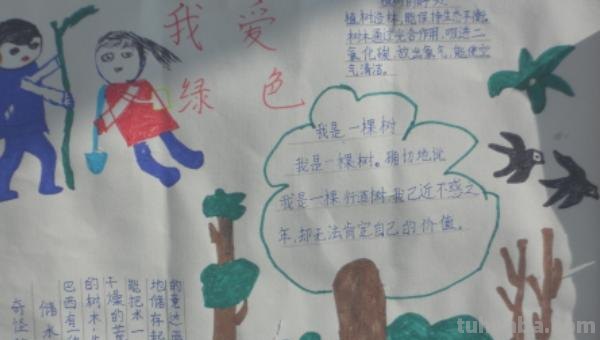 我爱
绿色
植树造林,能保持生态平衡。
树木通过光合作用,吸进二
氧化碳,放出氧气,能使空
气清洁。
我是一棵树
我是一棵树。确切地说
我是一棵行道树,我已近不惑之
年,却无法肯定自己的价值。
地储存起
能把水一
干燥的
的树木,
巴西有一
储水
奇怪